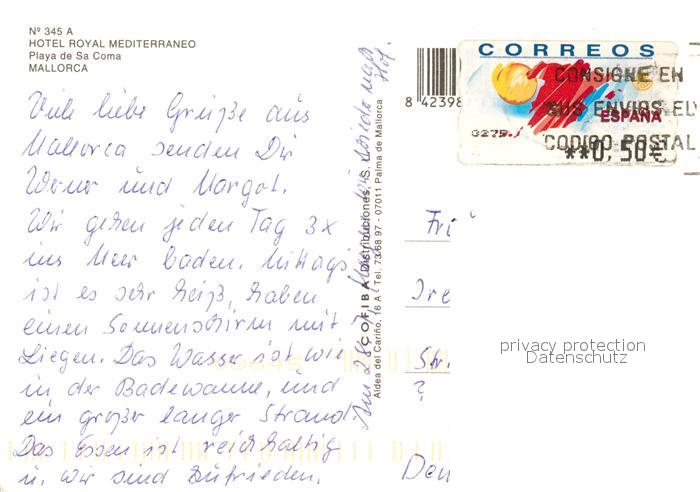 Nº 345 A
HOTEL ROYAL MEDITERRANEO
Playa de Sa Coma
MALLORCA
Viele liebe Grüße aus
Mallorca senden Dir
Werner und Margot.
Wir gehen jeden Tag 3x
ins Meer baden. Mittags
ist es sehr heiß, haben
einen Sonnenschirm mit
Liegen. Das Wasser ist wie
in der Badewanne, und
ein großer langer Strand
Das Essen ist reichhaltig
u. wir sind zufrieden.
Am 28.
wieder nach
Hof.
COFIBA Distribuciones, S. L.
Aldea del Cariño, 16 A - Tel. 73 68 97 - 07011 Palma de Mallorca
8 42398
CORREOS
CONSIGNE EN
SUS ENVIOS EL
ESPAÑA
CODIGO POSTAL
**0,50€
Str.
?
privacy protection
Datenschutz